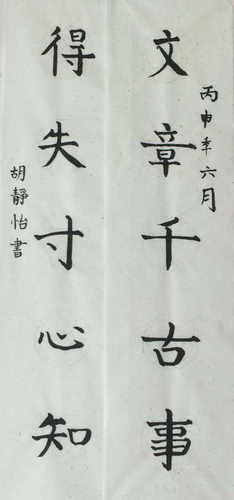 丙申年六月
文章千古事
得失寸心知
胡靜怡書